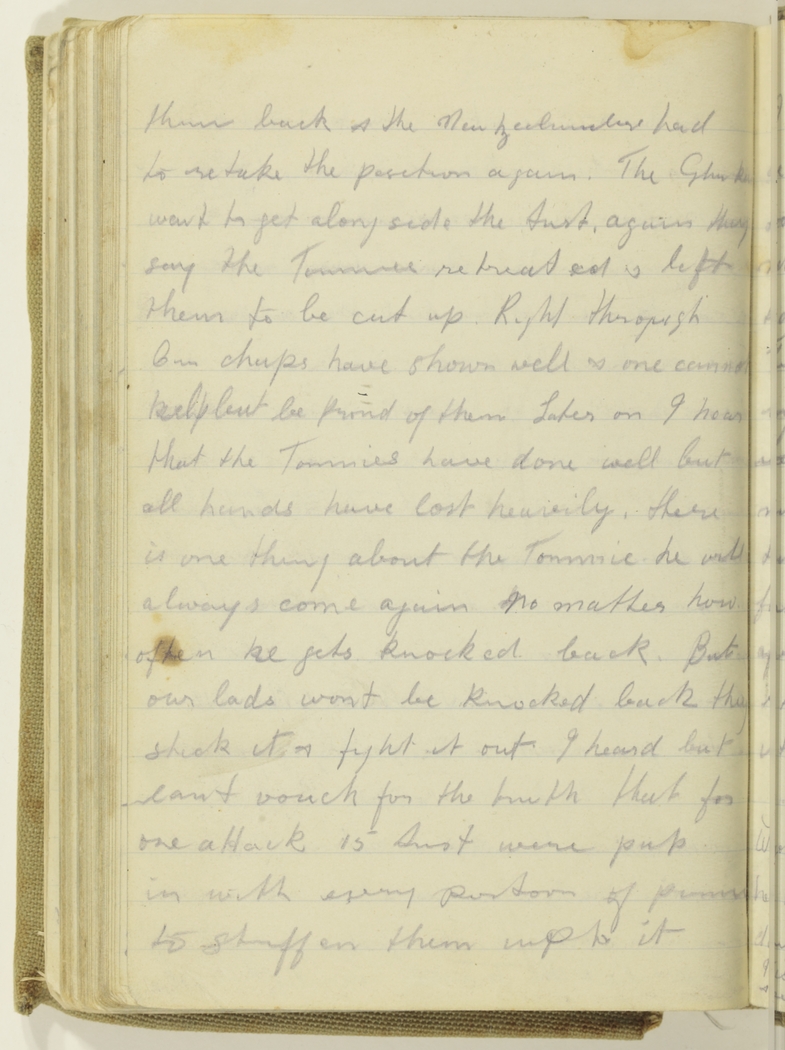 them back & the New Zealanders had
to retake the position again. The Ghurkas
want to get along side the Aust, again they
say the Tommies retreated & left
them to be cut up. Right through
Our chaps have shown well & one cannot
help but be proud of them Later on I hear
that the Tommies have done well but
all hands have lost heavily. There
is one thing about the Tommie he will
always come again no matter how
often he gets knocked back. But
our lads wont be knocked back they
stick it & fight it out. I heard but
cant vouch for the truth that for
one attack 15 Aust were put
in with every of
to stuffen them up to it